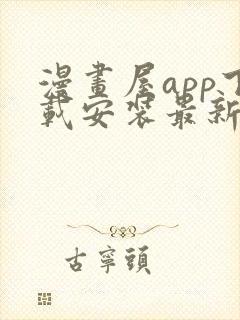 漫畫屋app下
載安裝最新
古寧頭